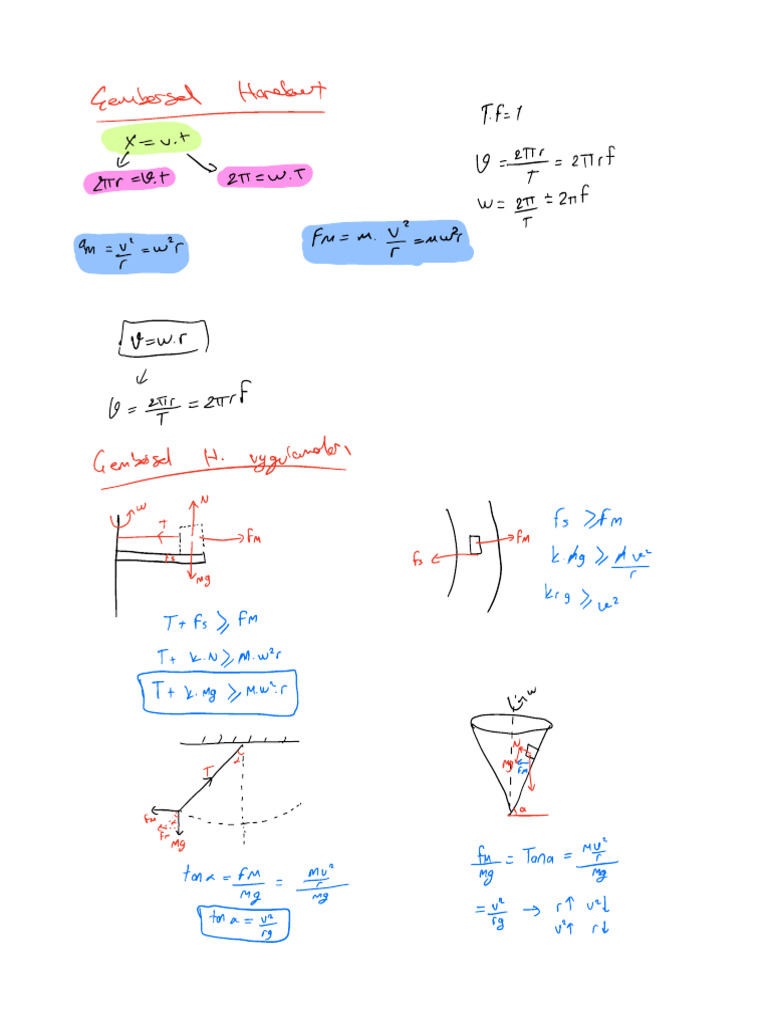 Çembersel Hareket
x = v.t
2πr = ϑ.t
2π = w.T
T.f = 1
ϑ = 2πr/T = 2πrf
w = 2π/T = 2πf
aM = v²/r = w²r
FM = M. v²/r = Mw²r
ϑ = w.r
ϑ = 2πr/T = 2πrf
Çembersel H. uygulamaları
w
N
T
FM
fs
Mg
T + fs ≥ FM
T + k.N ≥ M.w²r
T + k.Mg ≥ M.w².r
fs
FM
fs ≥ FM
k.Mg ≥ Mv²/r
krg ≥ v²
α
T
FM
α
Fr
Mg
tanα = FM/Mg = (Mv²/r)/Mg
tanα = v²/rg
w
N
Mg
FM
α
FM/Mg = Tanα = (Mv²/r)/Mg
= v²/rg → r↑ v²↓
v²↑ r↓